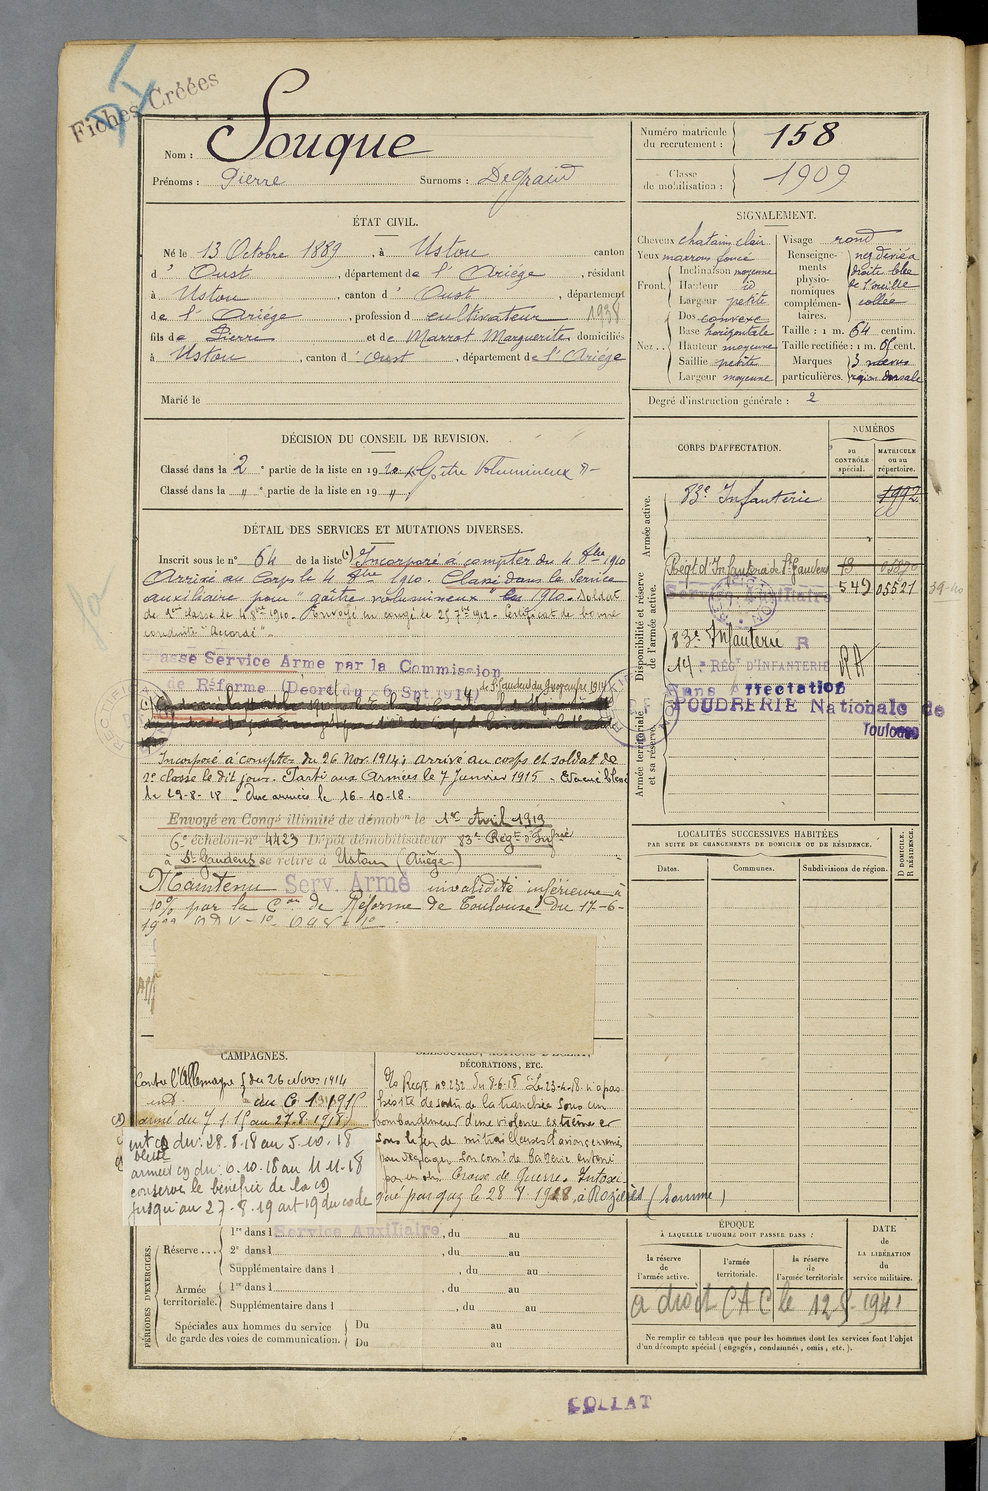 Fiches Créées
Nom : Souque
Prénoms : Pierre Surnoms : Degraid
Numéro matricule du recrutement : 158
Classe de mobilisation : 1909
ÉTAT CIVIL.
Né le 13 Octobre 1889, à Ustou canton
d' Oust, département de l'Ariége, résidant
à Ustou, canton d' Oust, département
de l'Ariége, profession d cultivateur 1938
fils de Pierre et de Marrot Marguerite domiciliés
à Ustou, canton d' Oust, département de l'Ariége
Marié le
SIGNALEMENT.
Cheveux chatain clair
Yeux marron foncé
Front. Inclinaison moyenne
Hauteur id
Largeur petite
Nez.. Dos convexe
Base horizontale
Hauteur moyenne
Saillie petite
Largeur moyenne
Visage rond
Renseignements physionomiques complémentaires. nez dévié à droite lobe de l'oreille collée
Taille : 1 m. 64 centim.
Taille rectifiée : 1 m. cent.
Marques particulières. 3 naevus région dorsale
Degré d'instruction générale : 2
DÉCISION DU CONSEIL DE REVISION.
Classé dans la 2e partie de la liste en 1910 Goître Volumineux
Classé dans la " e partie de la liste en 19 "
DÉTAIL DES SERVICES ET MUTATIONS DIVERSES.
Inscrit sous le n° 64 de la liste (1) Incorporé à compter du 4 8bre 1910
Arrivé au Corps le 4 8bre 1910. Classé dans le Service
auxiliaire pour "goître volumineux" 1910. Soldat
de 2me classe le 4 8bre 1910. Envoyé en congé le 25 7bre 1912. Certificat de bonne
conduite "Accordé".
Classé Service Armé par la Commission
de Réforme (Décret du 6 Spt. 1914) de St Gaudens du novembre 1914
Incorporé à compter du 26 Nov. 1914; arrivé au corps et soldat de
2e classe le dit jour. Parti aux Armées le 7 Janvier 1915 - Evacué blessé
le 29-8-18. Aux armées le 16-10-18.
Envoyé en Congé illimité de démobon le 1er Avril 1919
6e échelon n° 4423 Dépôt démobilisateur 83e Régt d'Infrie
à St Gaudens se retire à Ustou (Ariège)
Maintenu Serv. Armé invalidité inférieure à
10% par la Con de Réforme de Toulouse du 17-6-
CORPS D'AFFECTATION.
NUMÉROS
au CONTRÔLE spécial.
MATRICULE ou au répertoire.
Armée active.
83e Infanterie 1992
Disponibilité et réserve de l'armée active.
Régt d'Infanterie de St Gaudens 13
Service Auxiliaire 542 05521 39-40
83e Infanterie R
14e RÉGT D'INFANTERIE RA
Armée territoriale et sa réserve.
Sans Affectation
POUDRERIE Nationale de
Toulouse
LOCALITÉS SUCCESSIVES HABITÉES
PAR SUITE DE CHANGEMENTS DE DOMICILE OU DE RÉSIDENCE.
Dates. Communes. Subdivisions de région. D DOMICILE. R RÉSIDENCE.
CAMPAGNES.
Contre l'Allemagne du 26 Novr. 1914
int. au 6 1 1915
armé du 7.1.15 au 27.8.1918
int CS du : 28.8.18 au 5-10-18
blessé
armées CD du : 6.10.18 au 11-11-18
conserve le bénéfice de la CD
jusqu'au 27-8-19 art 19 du code
BLESSURES, ACTIONS D'ÉCLAT,
DÉCORATIONS, ETC.
Co Regt n° 232 du 8-6-18 Le 23-4-18 n'a pas
hésité de sortir de la tranchée sous un
bombardement d'une violence extrême et
sous le feu de mitrailleuses d'avions ennemis
Croix de Guerre. Intoxi-
qué par gaz le 28 1918 à Rozières (Somme)
PÉRIODES D'EXERCICES.
Réserve... 1re dans l Service Auxiliaire, du au
2e dans l , du au
Supplémentaire dans l , du au
Armée territoriale. 1re dans l , du au
Supplémentaire dans l , du au
Spéciales aux hommes du service de garde des voies de communication. Du au
Du au
ÉPOQUE
À LAQUELLE L'HOMME DOIT PASSER DANS :
la réserve de l'armée active.
l'armée territoriale.
la réserve de l'armée territoriale
DATE de LA LIBÉRATION du service militaire.
a droit CAC le 12 1941
Ne remplir ce tableau que pour les hommes dont les services font l'objet
d'un décompte spécial (engagés, condamnés, omis, etc.).
COLLAT